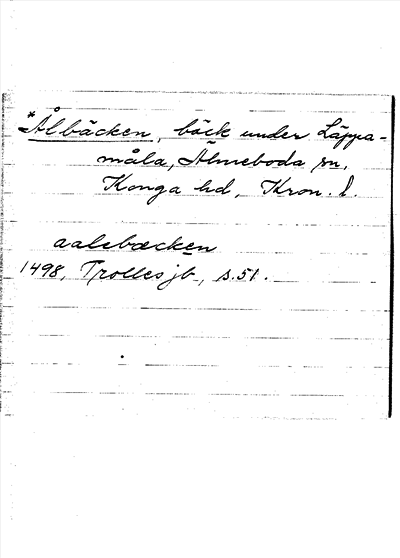 *Ålbäcken, bäck under Läppa-
måla, Älmeboda sn,
Konga hd, Kron. l.
aalebæcken
1498, Trolles jb, s. 51.